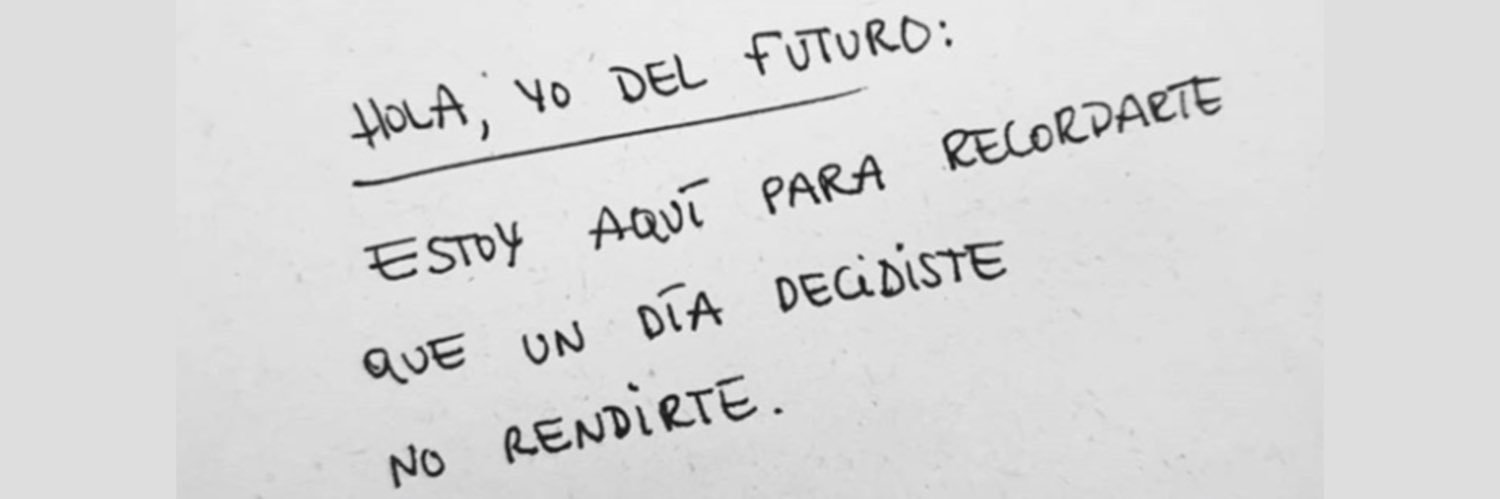 HOLA, YO DEL FUTURO:
ESTOY AQUÍ PARA RECORDARTE
QUE UN DÍA DECiDiSTE
NO RENDiRTE.